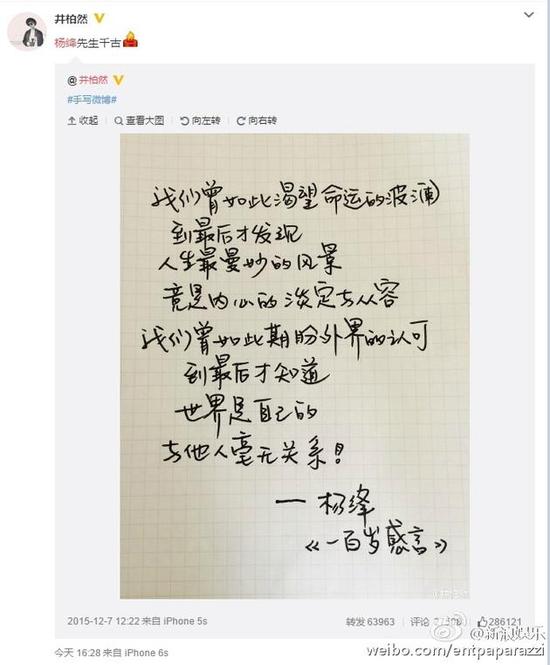 井柏然
杨绛先生千古
@井柏然
#手写微博#
收起 查看大图 向左转 向右转
我们曾如此渴望命运的波澜
到最后才发现
人生最曼妙的风景
竟是内心的淡定与从容
我们曾如此期盼外界的认可
到最后才知道
世界是自己的
与他人毫无关系！
一杨绛
《一百岁感言》
2015-12-7 12:22 来自 iPhone 5s
转发 63963 评论 286121
今天 16:28 来自 iPhone 6s
@新浪娱乐
weibo.com/entpaparazzi